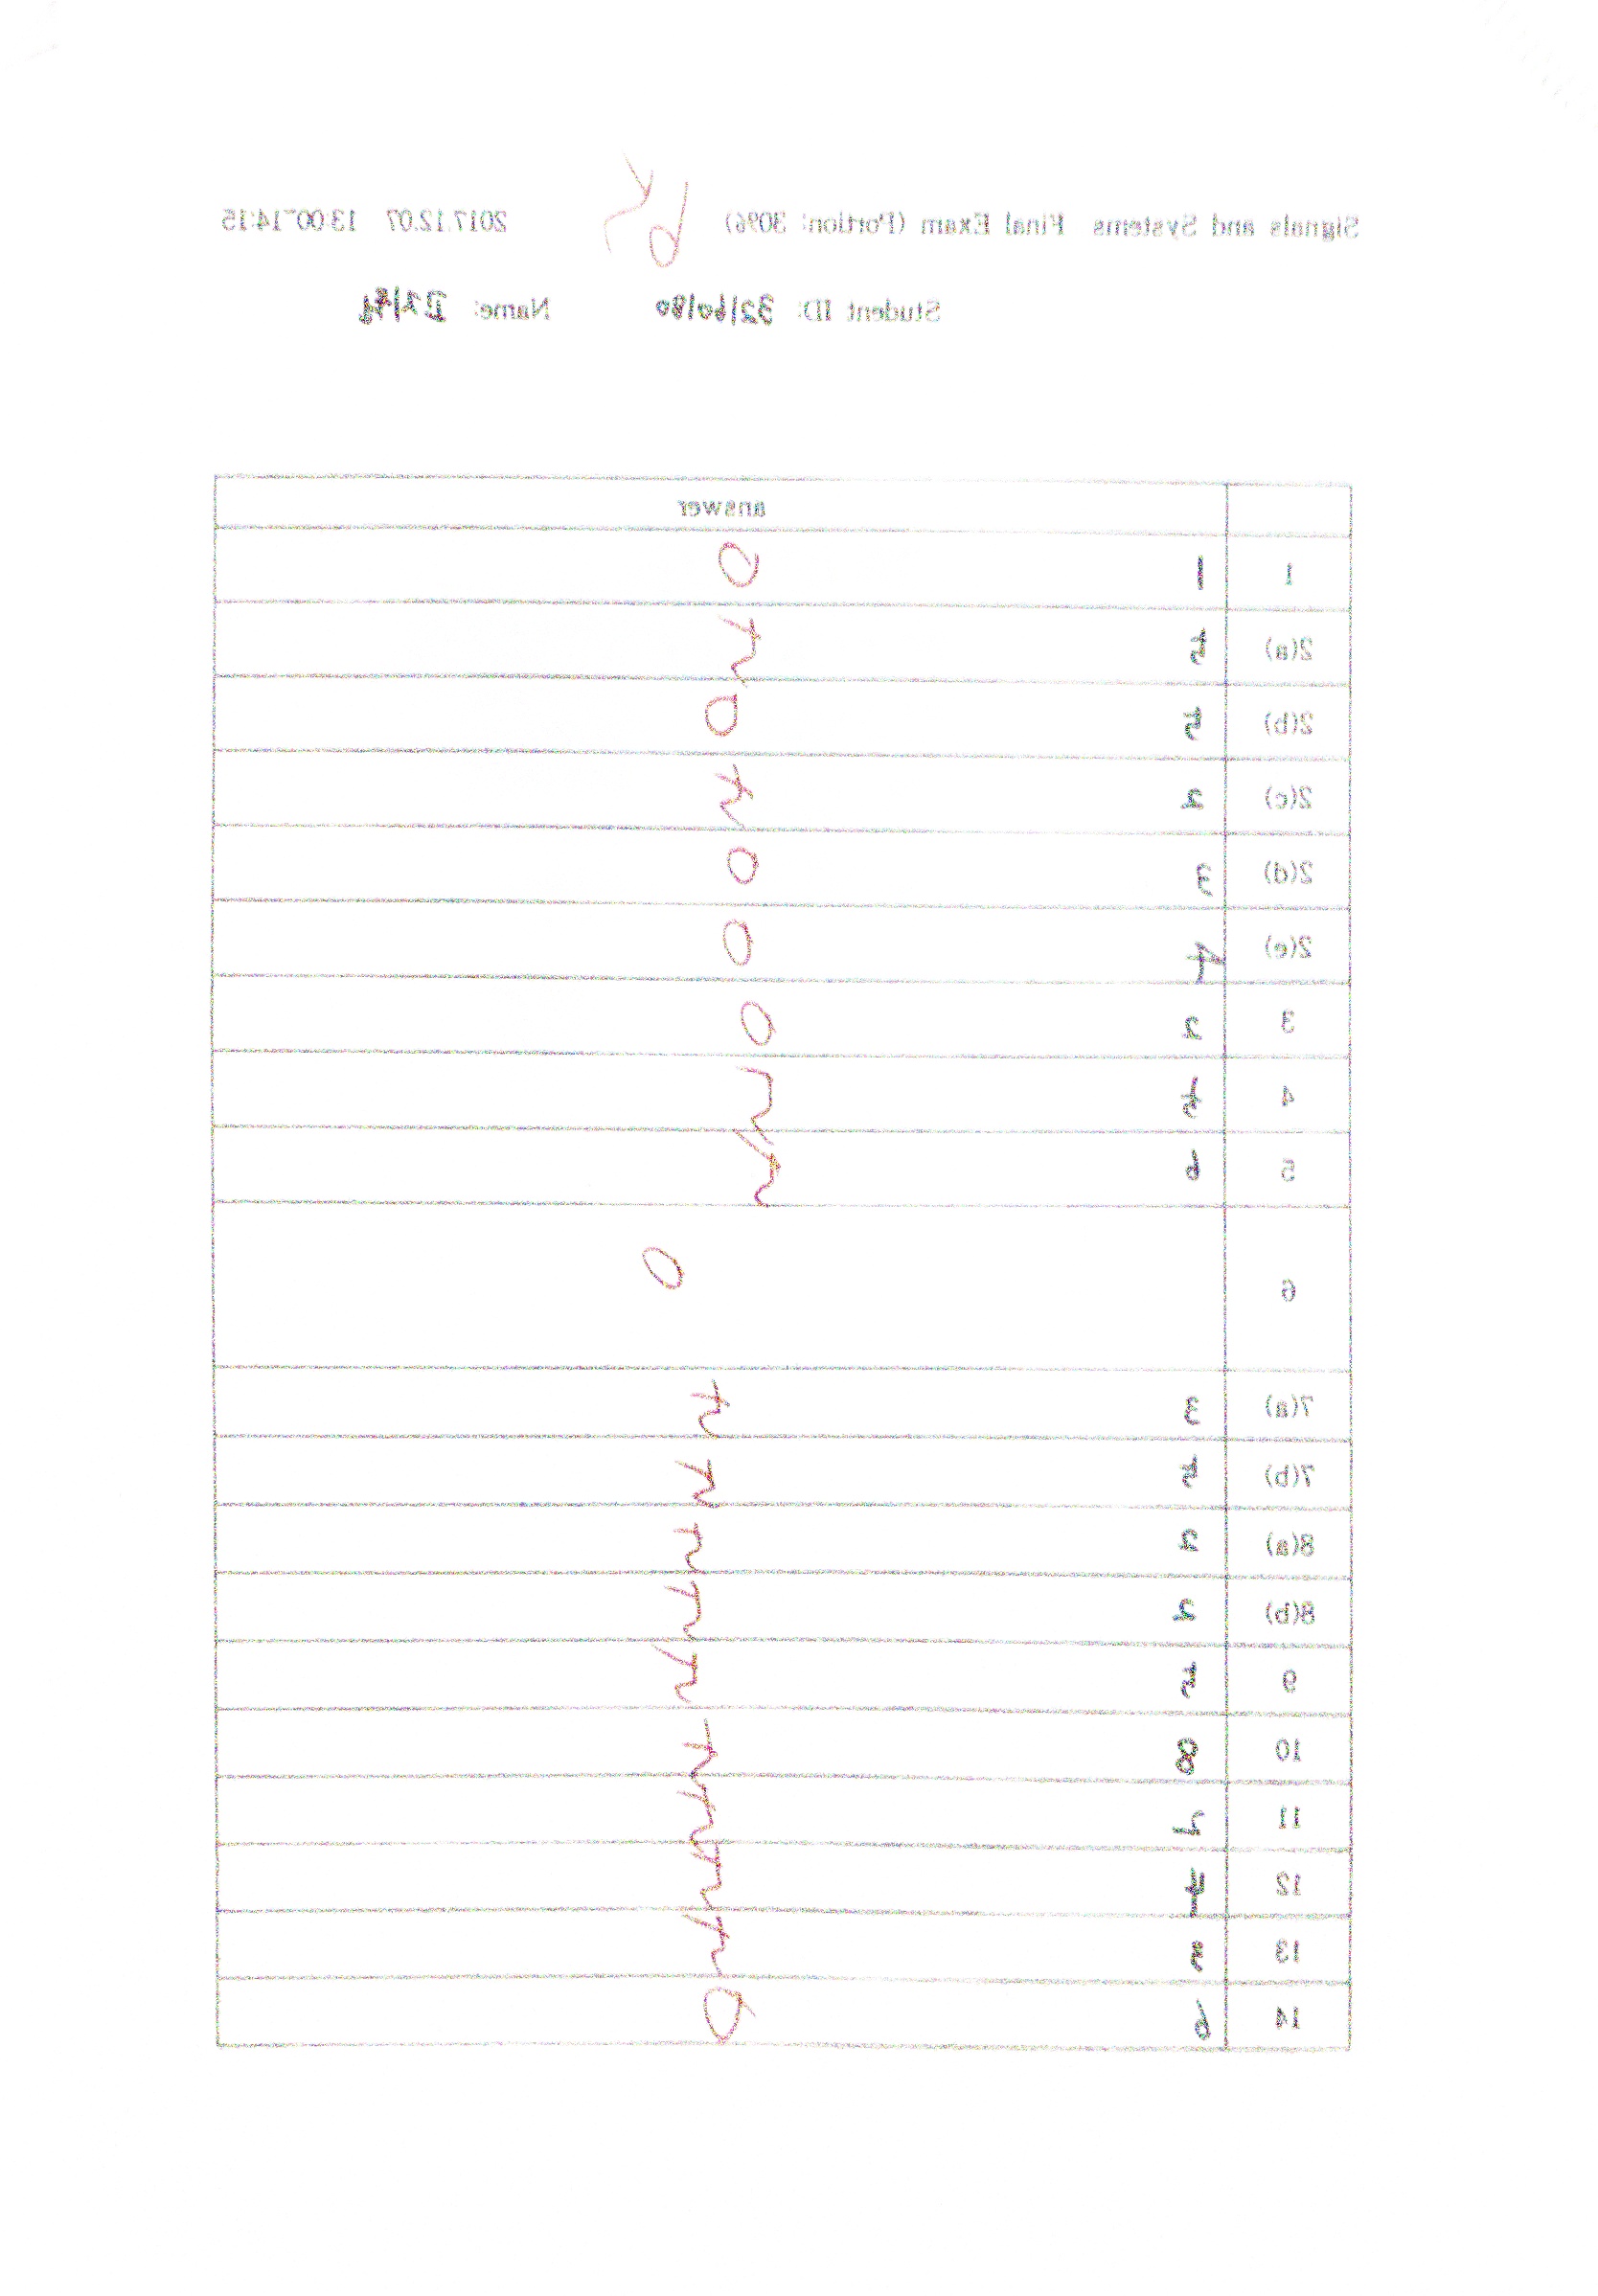 Signals and Systems Final Exam (Portion: 30%) 2017.12.07 13:00~14:15
Student ID: 32160180 Name:
answer
1 1
2(a) 5
2(b) 5
2(c) 2
2(d) 3
2(e) 4
3 2
4
5 6
6
7(a) 3
7(b) 5
8(a) 2
8(b) 2
9 5
10 8
11 2
12 4
13
14 6